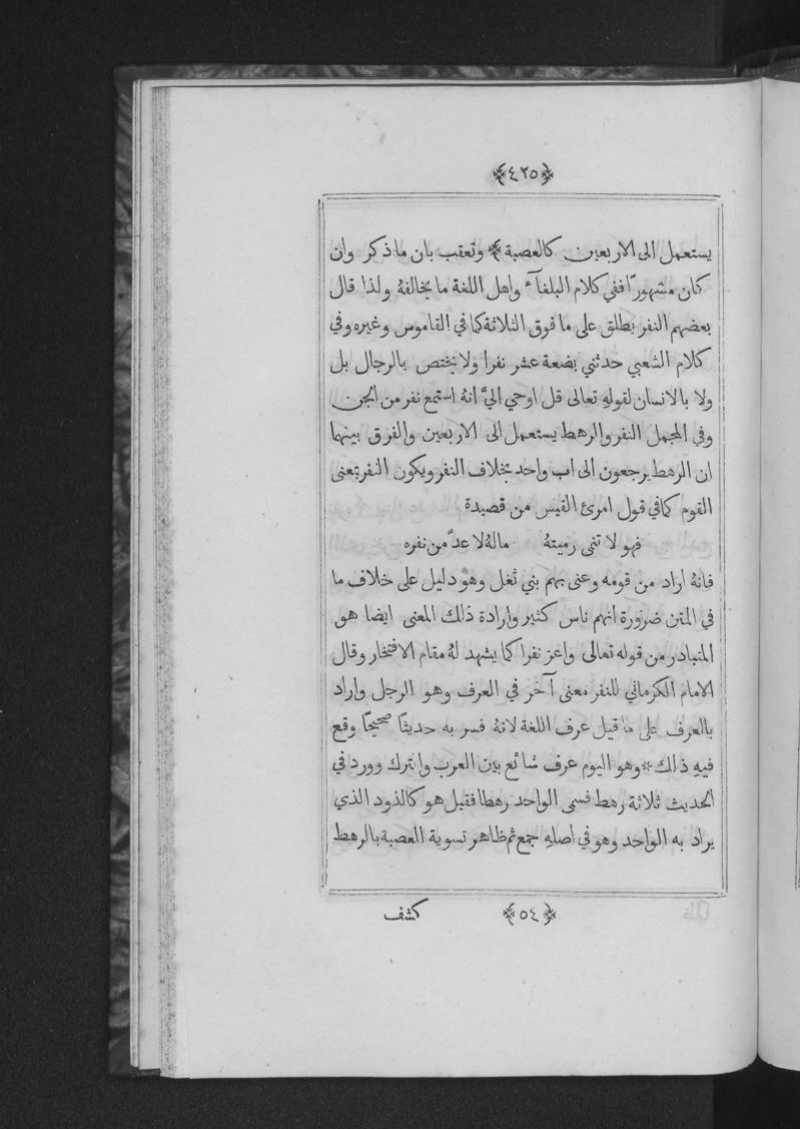 ﴿٤٢٥﴾
يستعمل الى الاربعين كالعصبة ﴾ وتعقب بان ما ذكر وان
كان مشهورًا ففي كلام البلغآء واهل اللغة ما يخالفهُ ولذا قال
بعضهم النفر يطلق على ما فوق الثلاثة كما في القاموس وغيره وفي
كلام الشعبي حدثني بضعة عشر نفرا ولا يختص بالرجال بل
ولا بالانسان لقولهِ تعالى قل اوحي اليَّ انهُ استمع نفر من الجن
وفي المجمل النفر والرهط يستعمل الى الاربعين والفرق بينهما
ان الرهط يرجعون الى اب واحد بخلاف النفر ويكون النفر بمعنى
القوم كما في قول امرئ القيس من قصيدة
فهو لا تنمى رميتهُ مالهُ لا عدَّ من نفره
فانهُ اراد من قومه وعنى بهم بني ثعل وهو دليل على خلاف ما
في المتن ضرورة انهم ناس كثير وارادة ذلك المعنى ايضا هو
المتبادر من قوله تعالى واعز نفرا كما يشهد لهُ مقام الافتخار وقال
الامام الكرماني للنفر معنى آخر في العرف وهو الرجل واراد
بالعرف على ما قيل عرف اللغة لانهُ فسر به حديثًا صحيحًا وقع
فيهِ ذلك * وهو اليوم عرف شائع بين العرب والترك وورد في
الحديث ثلاثة رهط فسمى الواحد رهطا فقيل هو كالذود الذي
يراد به الواحد وهو في اصلهِ جمع ثم ظاهر تسوية العصبة بالرهط
﴿٥٤﴾ كشف